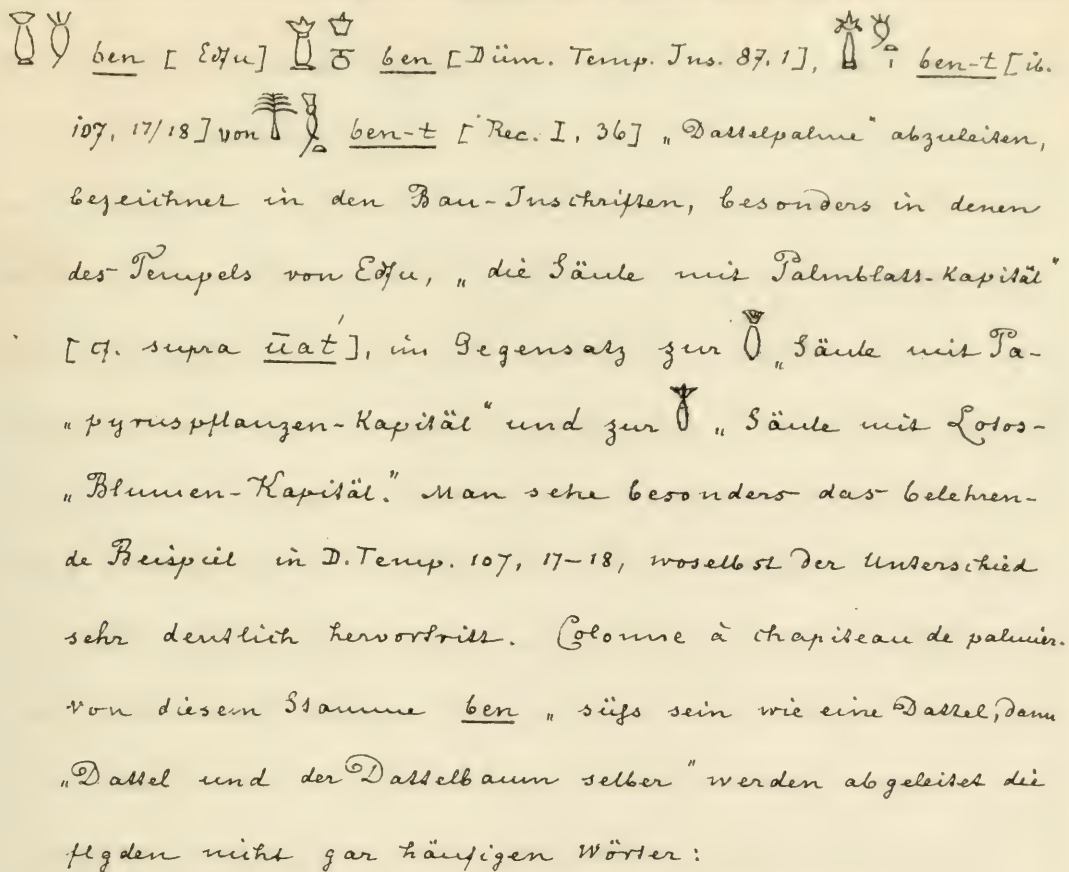 ben [Edfu] ben [Düm. Temp. Ins. 87.1], ben-t [ib.
107, 17/18] von ben-t [Rec. I, 36] „Dattelpalme“ abzuleiten,
bezeichnet in den Bau-Inschriften, besonders in denen
des Tempels von Edfu, „die Säule mit Palmblatt-Kapitäl“
[cf. supra ūat'], im Gegensatz zur „Säule mit Pa-
„pyruspflanzen-Kapitäl“ und zur „Säule mit Lotos-
„Blumen-Kapitäl.“ Man sehe besonders das belehren-
de Beispiel in D. Temp. 107, 17-18, woselbst der Unterschied
sehr deutlich hervortritt. Colonne à chapiteau de palmier.
von diesem Stamme ben „süßs sein wie eine Dattel, dann
„Dattel und der Dattelbaum selber“ werden abgeleitet die
flgden nicht gar häufigen Wörter: